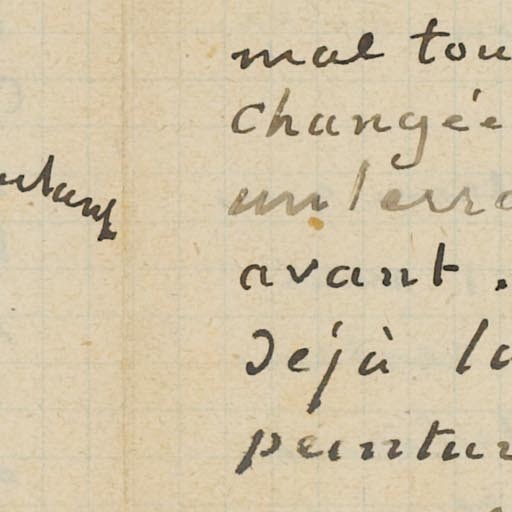 mal tou
changée
un terro
avant.
Déjà la
peintur